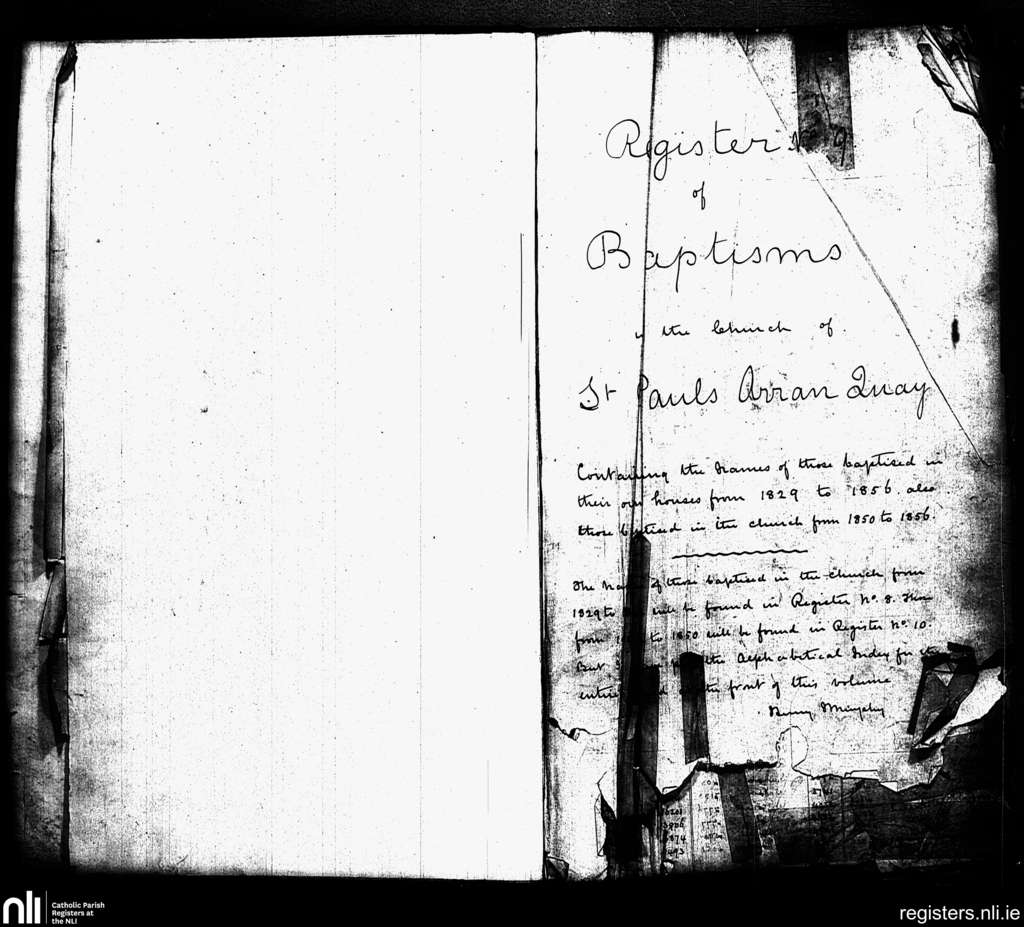 Register No 9
of
Baptisms
the Church of.
St Pauls Arran Quay
Containing the Names of those baptised in
their own houses from 1829 to 1856. also
those baptised in the church from 1850 to 1856.
The Na of those baptised in the church from
1829 to will be found in Register No. 8. Those
from to 1850 will be found in Register No. 10.
But the Alphabetical Index for the
entire the front of this volume
Murphy
nli
Catholic Parish
Registers at
the NLI
registers.nli.ie